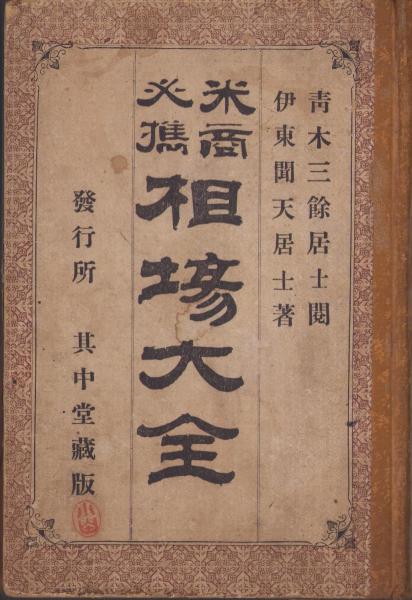 青木三餘居士閱
伊東聞天居士著
米商
必携
相場大全
發行所 其中堂藏版